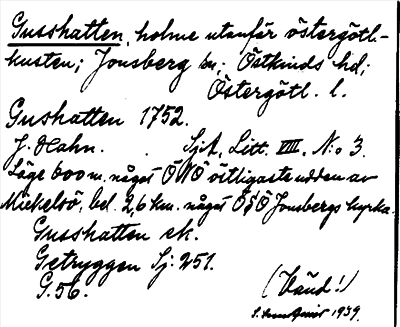 Gusshatten, holme utanför östergötl.-
kusten; Jonsberg sn; Östkinds hd;
Östergötl. l.
Gushatten 1752.
J. Hahn. Sjöf. Litt. VIII, N:o 3.
Läge 600 m. något ÖNÖ östligaste udden av
Mickelsö, bel. 2,6 km. något ÖSÖ Jonsbergs kyrka.
Gusshatten ek.
Getryggen Sj: 251.
G. 56.
(bäud!)
1939.